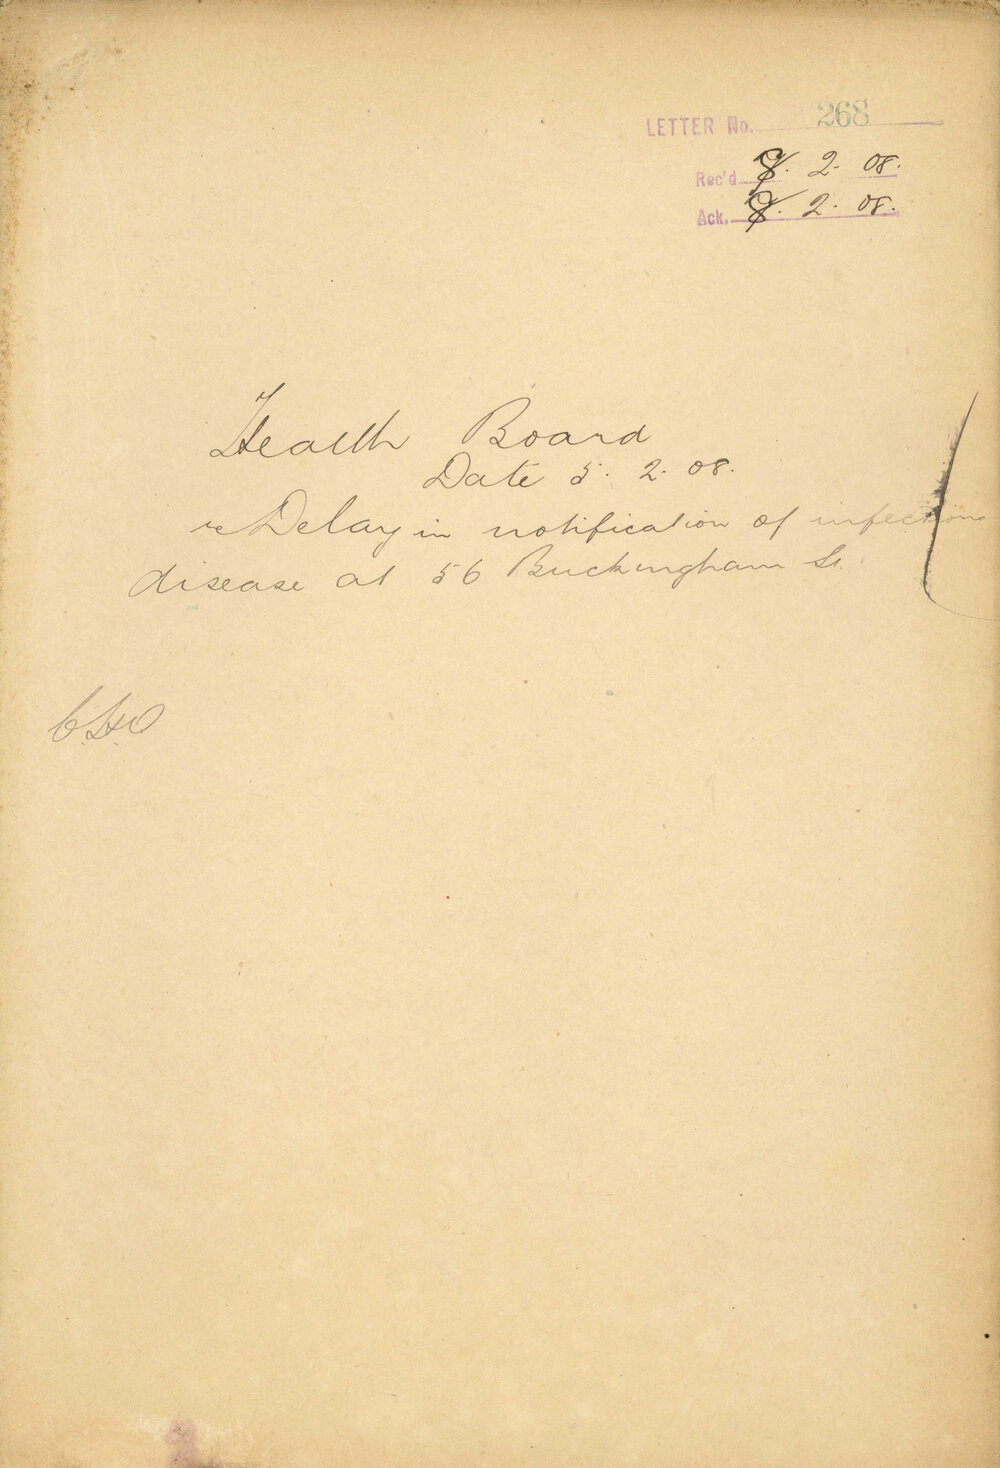 LETTER No. 268
Rec'd 2. 08.
Ack. 2. 08.
Health Board
Date 5. 2. 08.
re Delay in notification of infectious
disease at 56 Buckingham St.
C.H.O